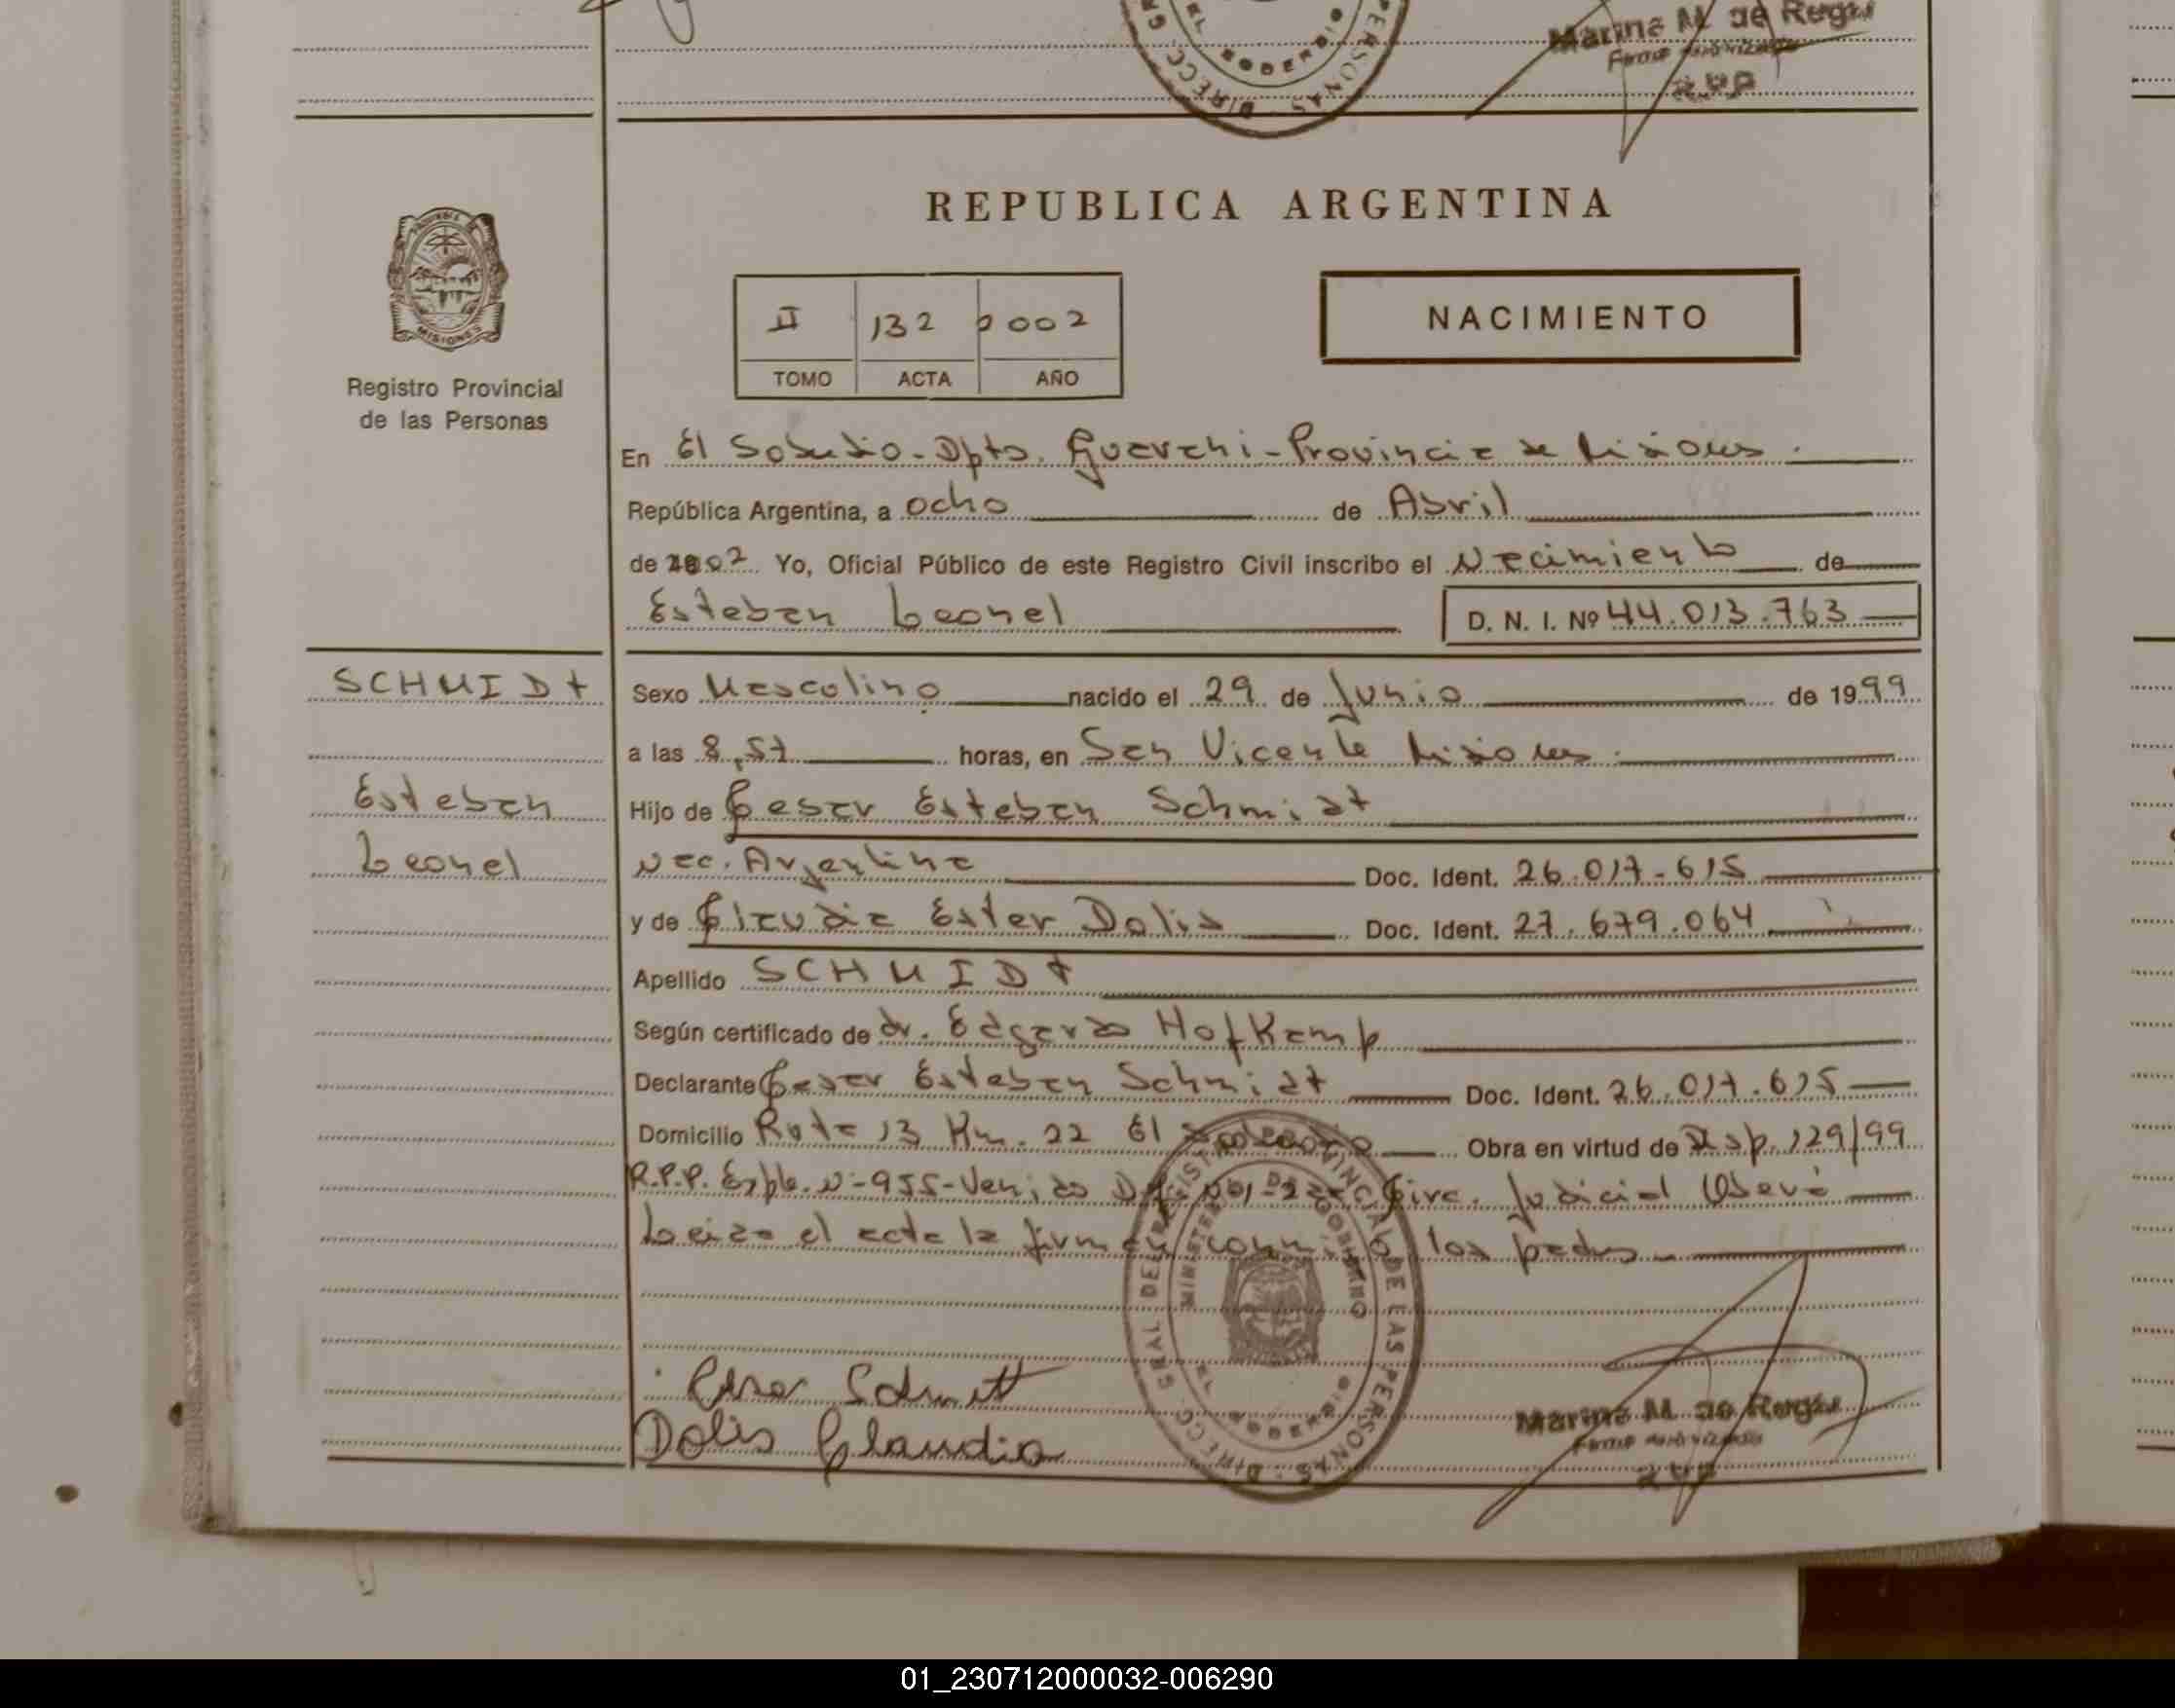 Marina M. de Regis
Firma autorizada
R.P.P.
DIRECC. GRAL
PERSONAS
REPUBLICA ARGENTINA
MISIONES
II 132 2002
TOMO ACTA AÑO
NACIMIENTO
Registro Provincial
de las Personas
En El Soberbio - Dpto. Guarani - Provincia de Misiones.
República Argentina, a ocho de Abril
de 2002 Yo, Oficial Público de este Registro Civil inscribo el Nacimiento de
Esteban Leonel D. N. I. Nº 44.013.763
SCHMIDt
Sexo Masculino nacido el 29 de Junio de 1999
a las 8,57 horas, en San Vicente Misiones.
Esteban
Hijo de Cesar Esteban Schmidt
Leonel
Nac. Argentina Doc. Ident. 26.017.615
y de Claudia Ester Dalis Doc. Ident. 27.679.064
Apellido SCHMIDt
Según certificado de dr. Edgardo Hofkamp
Declarante Cesar Esteban Schmidt Doc. Ident. 26.017.615
Domicilio Ruta 13 Km. 22 El Soberbio Obra en virtud de Disp. 129/99
R.P.P. Expte. N-955- Circ. Judicial Oberá
Leida el acta la firman los padres
DIRECC. GRAL DEL REGISTRO PROVINCIAL DE LAS PERSONAS
MINISTERIO DE GOBIERNO
Cesar Schmitt
Dolis Claudia
Marina M. de Regis
Firma autorizada
R.P.P.
01_230712000032-006290